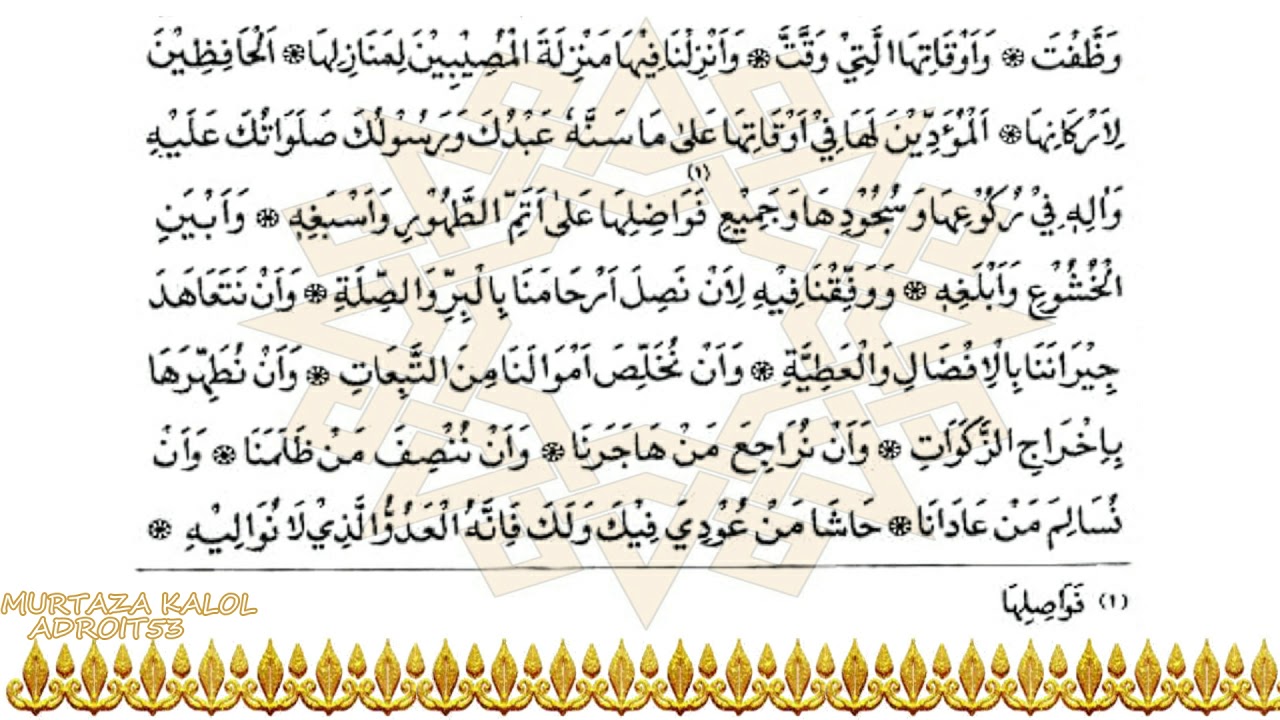 وَظَّفْتَ ۞ وَاَوْقَاتِهَا الَّتِيْ وَقَّتَّ ۞ وَاَنْزِلْنَا فِيْهَا مَنْزِلَةَ الْمُصِيْبِيْنَ لِمَنَازِلِهَا ۞ اَلْحَافِظِيْنَ
لِاَرْكَانِهَا ۞ اَلْمُؤَدِّيْنَ لَهَا فِيْ اَوْقَاتِهَا عَلٰى مَا سَنَّهٗ عَبْدُكَ وَرَسُوْلُكَ صَلَوَاتُكَ عَلَيْهِ
وَاٰلِهٖ فِيْ رُكُوْعِهَا وَسُجُوْدِهَا وَجَمِيْعِ فَوَاضِلِهَا (١) عَلٰى اَتَمِّ الطَّهُوْرِ وَاَسْبَغِهٖ ۞ وَاَبْيَنِ
الْخُشُوْعِ وَاَبْلَغِهٖ ۞ وَوَفِّقْنَا فِيْهِ لِاَنْ نَصِلَ اَرْحَامَنَا بِالْبِرِّ وَالصِّلَةِ ۞ وَاَنْ نَتَعَاهَدَ
جِيْرَانَنَا بِالْاِفْضَالِ وَالْعَطِيَّةِ ۞ وَاَنْ نُخَلِّصَ اَمْوَالَنَا مِنَ التَّبِعَاتِ ۞ وَاَنْ نُطَهِّرَهَا
بِاِخْرَاجِ الزَّكَوَاتِ ۞ وَاَنْ نُرَاجِعَ مَنْ هَاجَرَنَا ۞ وَاَنْ نُنْصِفَ مَنْ ظَلَمَنَا ۞ وَاَنْ
نُسَالِمَ مَنْ عَادَانَا ۞ حَاشَا مَنْ عُوْدِيَ فِيْكَ وَلَكَ فَاِنَّهُ الْعَدُوُّ الَّذِيْ لَا نُوَالِيْهِ ۞
(١) فَوَاصِلِهَا
MURTAZA KALOL
ADROIT53